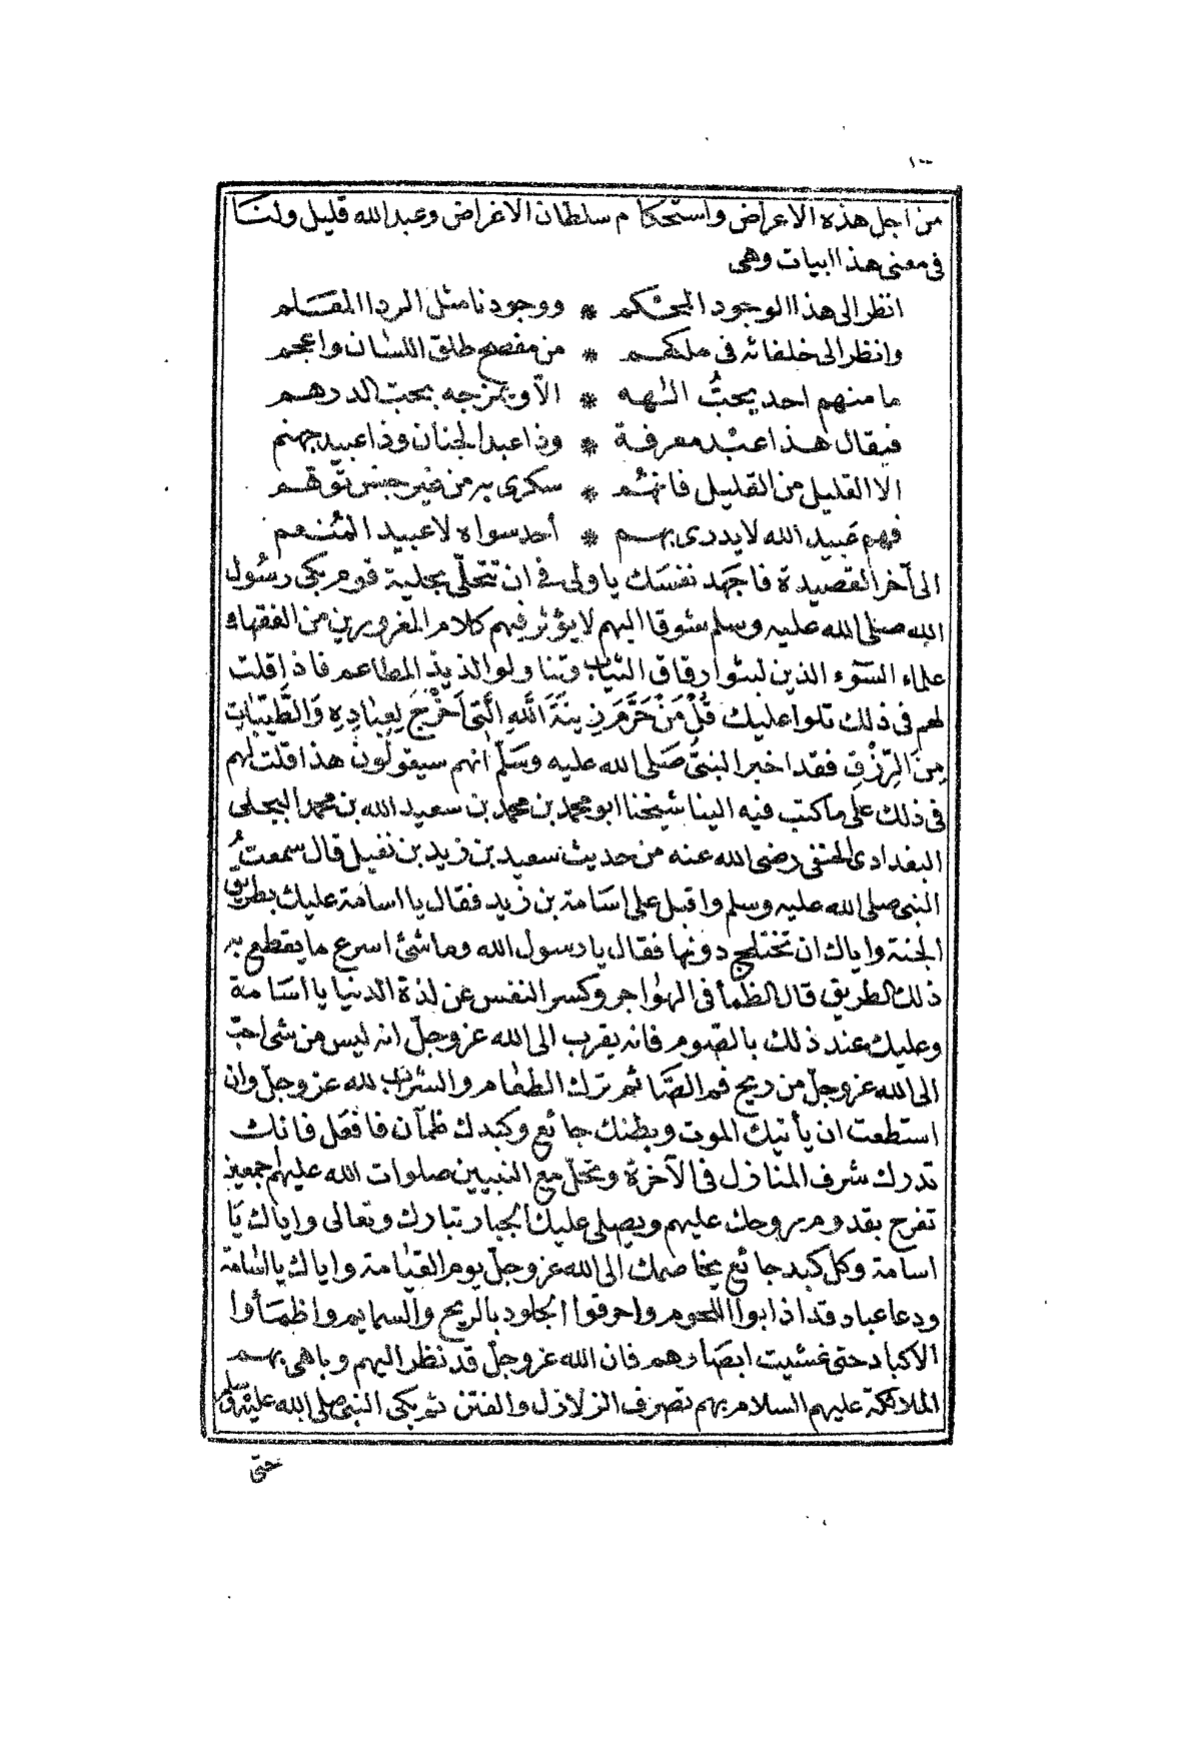 ١٠٠
من اجل هذه الاعراض واستحكام سلطان الاغراض وعبد الله قليل ولنا
فى معنى هذا ابيات وهى
انظر الى هذا الوجود المحكم * ووجودنا مثل الردا المعلم
وانظر الى خلفائه فى ملكهم * من مفصح طلق اللسان واعجم
ما منهم احد يحبُّ الٰهه * الّا ويمزجه بحب الدرهم
فيقال هذا عبد معرفة * وذا عبد الجنان وذا عبيد جهنم
الا القليل من القليل فانهم * سكرى به من غير حس توّهم
فهم عبيد الله لا يدرى بهم * أحد سواه لا عبيد المنعم
الى آخر القصيدة فاجهد نفسك يا ولى فى ان تتحلّى بحلية قوم بكى رسُول
الله صلى الله عليه وسلم شوقا اليهم لا يؤثر فيهم كلام المغرورين من الفقهاء
علماء السّوء الذين لبسوا رقاق الثياب وتناولوا لذيذ المطاعم فاذا قلت
لهم فى ذلك تلوا عليك قُلْ مَنْ حَرَّمَ زِينَةَ اللهِ الَّتِى اَخْرَجَ لِعِبَادِهِ وَالطَّيِّبَاتِ
مِنَ الرِّزْقِ فقد اخبر النبىُّ صَلى الله عليه وسَلم أنهم سيقولون هذا قلت لهم
فى ذلك على ما كتب فيه الينا شيخنا ابو محمد بن محمد بن سعيد الله بن محمد البجلى
البغدادى الحنفى رضى الله عنه من حديث سعيد بن زيد بن نفيل قال سمعتُ
النبى صلى الله عليه وسلم واقبل على اسَامة بن زيد فقال يا اسامة عليك بطريق
الجنة واياك ان تختلج دونها فقال يا رسول الله وما شئ اسرع ما يقطع به
ذلك الطريق قال الظمأ فى الهواجر وكسر النفس عن لذة الدنيا يا اسَامة
وعليك عند ذلك بالصوم فانه يقرب الى الله عز وجلّ انه ليس من شى احبّ
الى الله عز وجلّ من ريح فم الصَّائم ترك الطعام والشراب لله عز وجلّ وان
استطعت ان يأتيك الموت وبطنك جائع وكبدك ظمآن فافعل فانك
تدرك شرف المنازل فى الآخرة وتحلّ مع النبيين صلوات الله عليهم اجمعين
تفرح بقدوم روحك عليهم ويصلى عليك الجبار تبارك وتعالى واياك يَا
اسامة وكل كبد جائع يخاصمك الى الله عز وجلّ يوم القيامة واياك يا اسامة
ودعا عباد قد اذابوا اللحوم واحرقوا الجلود بالريح والسمايم واظمَأوا
الاكباد حتى غشيت ابصَارهم فان الله عز وجلّ قد نظر اليهم وباهى بهم
الملائكة عليهم السلام بهم تصرف الزلازل والفتن ثم بكى النبى صلى الله عليه وسلم
حتى